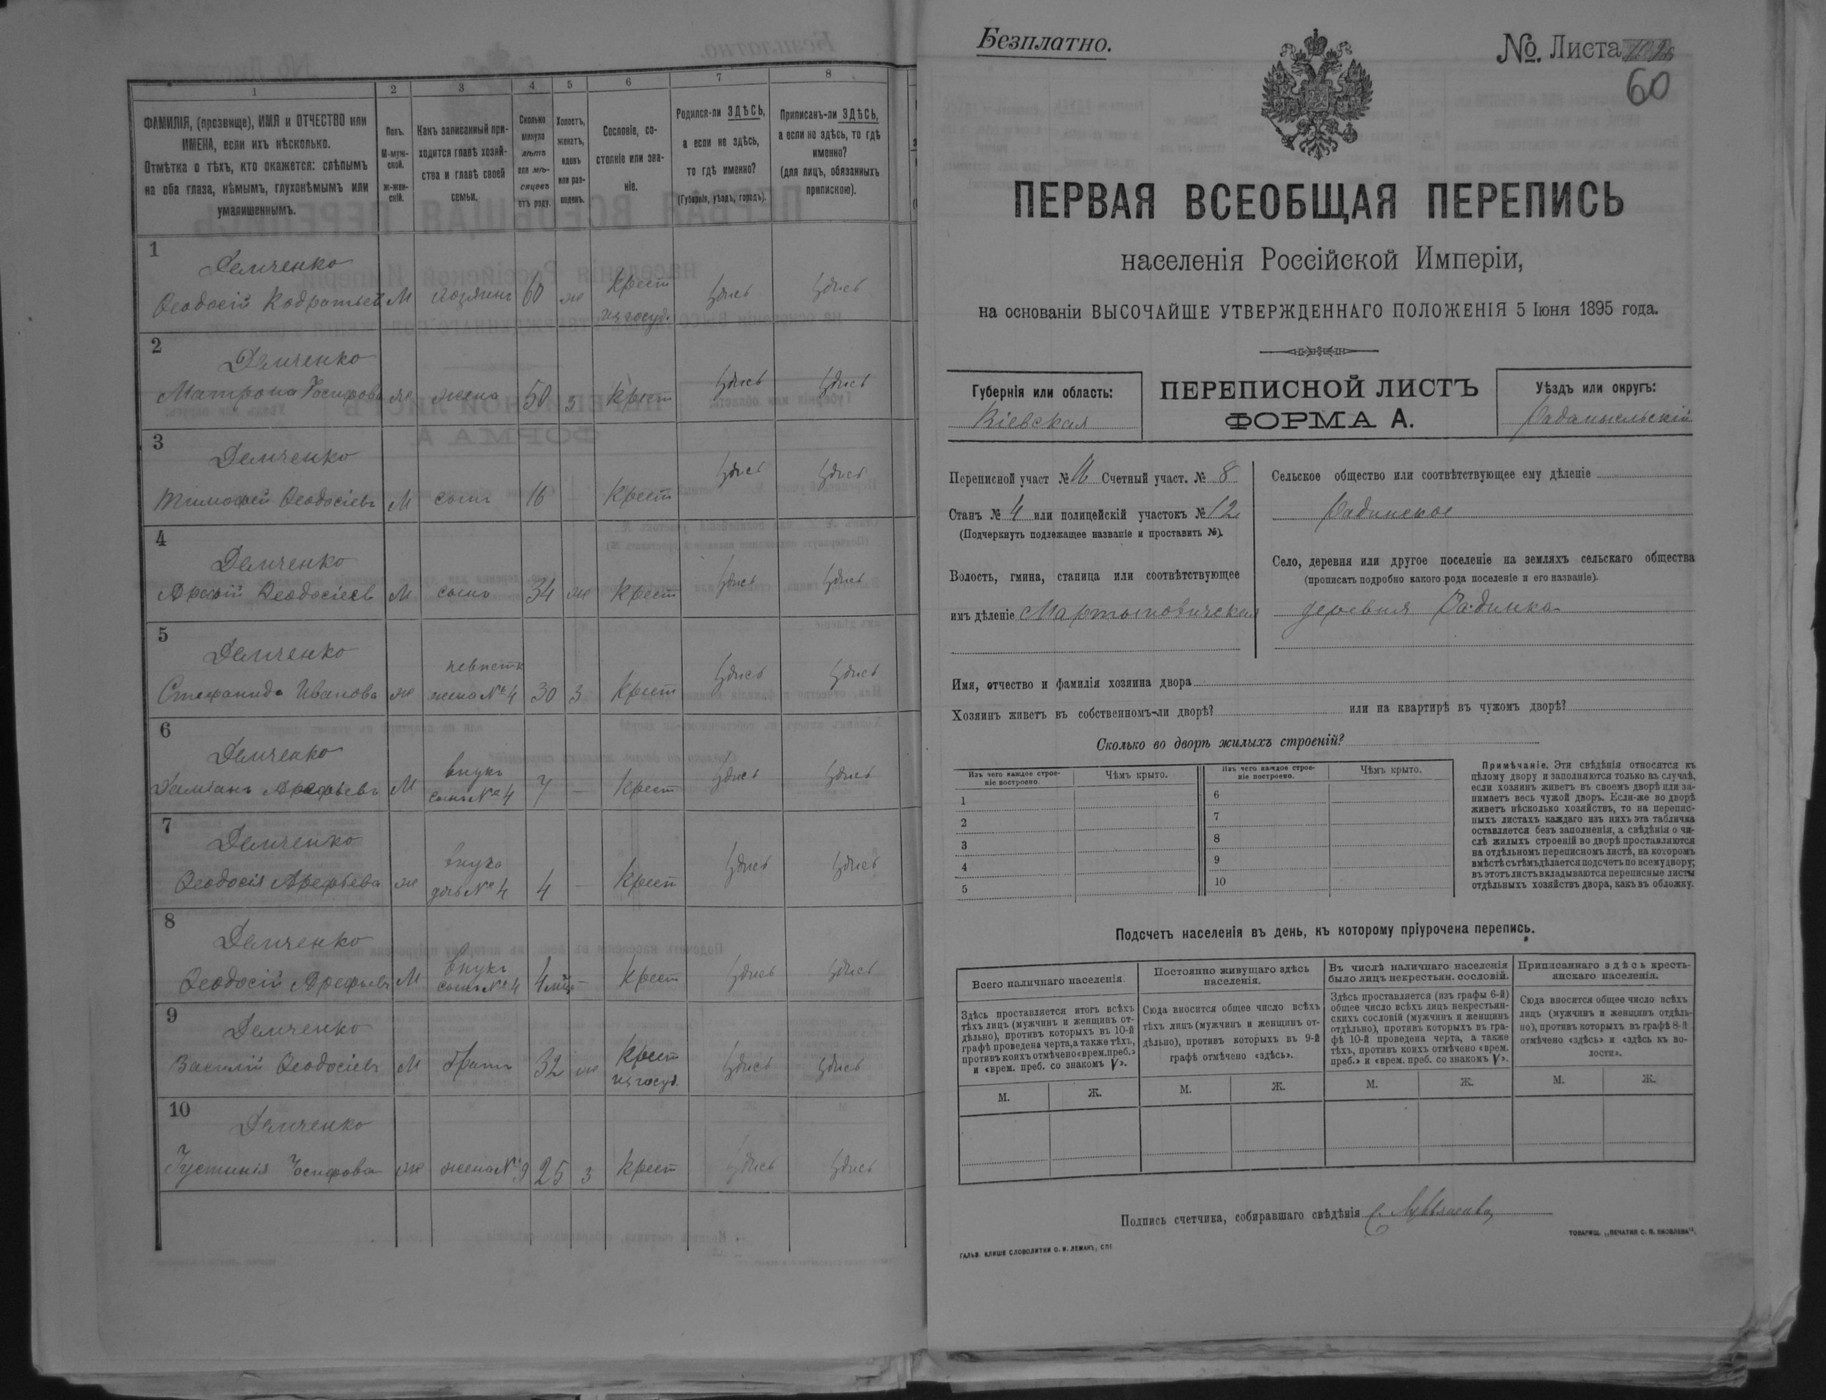 1 2 3 4 5 6 7 8
ФАМИЛІЯ, (прозвище), ИМЯ и ОТЧЕСТВО или ИМЕНА, если ихъ нѣсколько.
Отмѣтка о тѣхъ, кто окажется: слѣпымъ на оба глаза, нѣмымъ, глухонѣмымъ или умалишеннымъ.
Полъ. М-муж-ской. ж-жен-скій.
Какъ записанный при-ходится главѣ хозяй-ства и главѣ своей семьи.
Сколько минуло лѣтъ или мѣ-сяцевъ отъ роду.
Холостъ, женатъ, вдовъ или раз-веденъ.
Сословіе, со-стояніе или зва-ніе.
Родился-ли ЗДѢСЬ, а если не здѣсь, то гдѣ именно? (Губернія, уѣздъ, городъ).
Приписанъ-ли ЗДѢСЬ, а если не здѣсь, то гдѣ именно? (для лицъ, обязанныхъ припискою).
1
Демченко
Ѳеодосій Кодратьев М хозяинъ 60 ж Крест здись здись
из госуд.
2
Демченко
Матрона Іосифова ж жена 50 з Крест здись здись
3
Демченко
Тимофей Ѳеодосіевъ М сынъ 16 Крест здись здись
4
Демченко
Арефій Ѳеодосіевъ М сынъ 34 ж Крест здись здись
5
Демченко невѣстк
Стефанида Иванова ж жена № 4 30 з Крест здись здись
6
Демченко внукъ
Даміанъ Арефьевъ М сынъ № 4 7 – Крест здись здись
7
Демченко внука
Ѳеодосія Арефьева ж дочь № 4 4 – Крест здись здись
8
Демченко внукъ
Ѳеодосій Арефьевъ М сынъ № 4 4 мѣс – Крест здись здись
9
Демченко Крест
Василій Ѳеодосіевъ М братъ 32 ж из госуд. здись здись
10
Демченко
Густинія Іосифова ж жена № 9 25 з Крест здись здись
Безплатно.
№ Листа
60
ПЕРВАЯ ВСЕОБЩАЯ ПЕРЕПИСЬ
населенія Россійской Имперіи,
на основаніи ВЫСОЧАЙШЕ УТВЕРЖДЕННАГО ПОЛОЖЕНІЯ 5 Іюня 1895 года.
Губернія или область:
Кіевская
ПЕРЕПИСНОЙ ЛИСТЪ
ФОРМА А.
Уѣздъ или округъ:
Радомысльскій
Переписной участ № Счетный участ. № 8
Станъ № 4 или полицейскій участокъ № 12
(Подчеркнуть подлежащее названіе и проставить №).
Волость, гмина, станица или соотвѣтствующее
имъ дѣленіе Мартыновичская
Сельское общество или соотвѣтствующее ему дѣленіе
Радинское
Село, деревня или другое поселеніе на земляхъ сельскаго общества
(прописать подробно какого рода поселеніе и его названіе).
деревня Радинка
Имя, отчество и фамилія хозяина двора
Хозяинъ живетъ въ собственномъ-ли дворѣ? или на квартирѣ въ чужомъ дворѣ?
Сколько во дворѣ жилыхъ строеній?
Изъ чего каждое строе-ніе построено. Чѣмъ крыто. Изъ чего каждое строе-ніе построено. Чѣмъ крыто.
1 6
2 7
3 8
4 9
5 10
Примѣчаніе. Эти свѣдѣнія относятся къ
цѣлому двору и заполняются только въ случаѣ,
если хозяинъ живетъ въ своемъ дворѣ или за-
нимаетъ весь чужой дворъ. Если-же во дворѣ
живетъ нѣсколько хозяйствъ, то на перепис-
ныхъ листахъ каждаго изъ нихъ эта табличка
оставляется безъ заполненія, а свѣдѣнія о чи-
слѣ жилыхъ строеній во дворѣ проставляются
на отдѣльномъ переписномъ листѣ, на которомъ
вмѣстѣ съ тѣмъ дѣлается подсчетъ по всему двору;
въ этотъ листъ вкладываются переписные листы
отдѣльныхъ хозяйствъ двора, какъ въ обложку.
Подсчетъ населенія въ день, къ которому пріурочена перепись.
Всего наличнаго населенія.
Здѣсь проставляется итогъ всѣхъ
тѣхъ лицъ (мужчинъ и женщинъ от-
дѣльно), противъ которыхъ въ 10-й
графѣ проведена черта, а также тѣхъ,
противъ коихъ отмѣчено «врем. преб.»
и «врем. преб. со знакомъ V».
Постоянно живущаго здѣсь
населенія.
Сюда вносится общее число всѣхъ
тѣхъ лицъ (мужчинъ и женщинъ от-
дѣльно), противъ которыхъ въ 9-й
графѣ отмѣчено «здѣсь».
Въ числѣ наличнаго населенія
было лицъ некрестьян. сословій.
Здѣсь проставляется (изъ графы 6-й)
общее число всѣхъ лицъ некрестьян-
скихъ сословій (мужчинъ и женщинъ
отдѣльно), противъ которыхъ въ гра-
фѣ 10-й проведена черта, а также
тѣхъ, противъ коихъ отмѣчено «врем.
преб.» и «врем. преб. со знакомъ V».
Приписаннаго здѣсь кресть-
янскаго населенія.
Сюда вносится общее число всѣхъ
лицъ (мужчинъ и женщинъ отдѣль-
но), противъ которыхъ въ графѣ 8-й
отмѣчено «здѣсь» и «здѣсь къ во-
лости».
М. Ж. М. Ж. М. Ж. М. Ж.
Подпись счетчика, собиравшаго свѣдѣнія
ГАЛЬВ. КЛИШЕ СЛОВОЛИТНИ О. И. ЛЕМАНЪ, СПБ
ТОВАРИЩ. „ПЕЧАТНЯ С. П. ЯКОВЛЕВА".